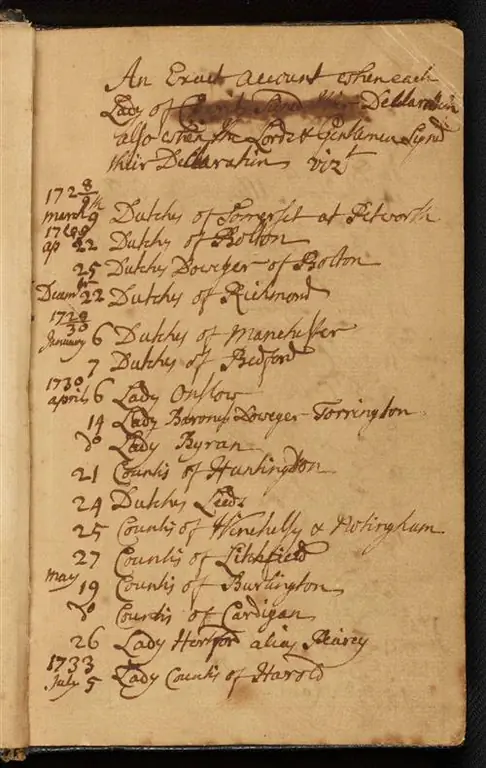 An Exact account when each
Lady of Declaration
also when the Lords & Gentlemen Sign'd
their Declaration vizt
172 8/9
march 9th Dutches of Somerset at Petworth
ap 22 Dutches of Bolton
25 Dutches Doweger of Bolton
Decembr 22 Dutches of Richmond
17 29/30
January 6 Dutches of Manchester
7 Dutches of Bedford
1730
april 6 Lady Onslow
14 Lady Barones Doweger Torrington
do Lady Byran
21 Countis of Huntingdon
24 Dutches Leeds
25 Countis of Winchelly & Notingham
27 Countis of Litchfield
may 19 Countis of Burlington
do Countis of Cardigan
26 Lady Hertfor alias Pearcy
1733
July 5 Lady Countis of Harold